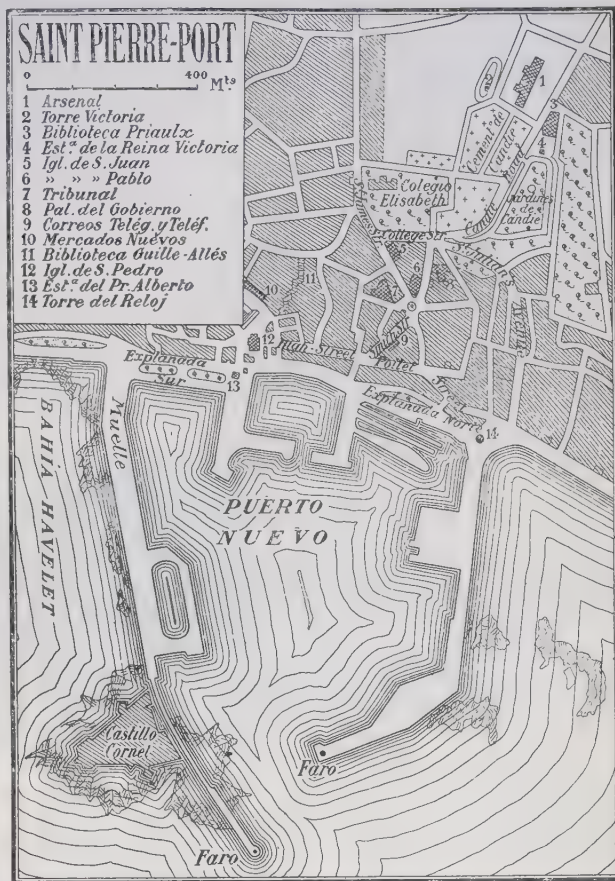 SAINT PIERRE-PORT
0 400 Mts.
1 Arsenal
2 Torre Victoria
3 Biblioteca Priaulx
4 Est.a de la Reina Victoria
5 Igl. de S. Juan
6 » » » Pablo
7 Tribunal
8 Pal. del Gobierno
9 Correos Telég. y Teléf.
10 Mercados Nuevos
11 Biblioteca Guille-Allés
12 Igl. de S. Pedro
13 Est.a del Pr. Alberto
14 Torre del Reloj
1
2
3
4
Cement. de Candie
Candie Road
Jardines de Candie
Colegio Elisabeth
College Str.
St. Julian's Avenue
5
6
7
9
10
11
12
13
14
High-Street
Smith Str.
Pollet
Explanada Sur
Explanada Norte
Muelle
BAHÍA HAVELET
PUERTO
NUEVO
Castillo
Cornet
Faro
Faro